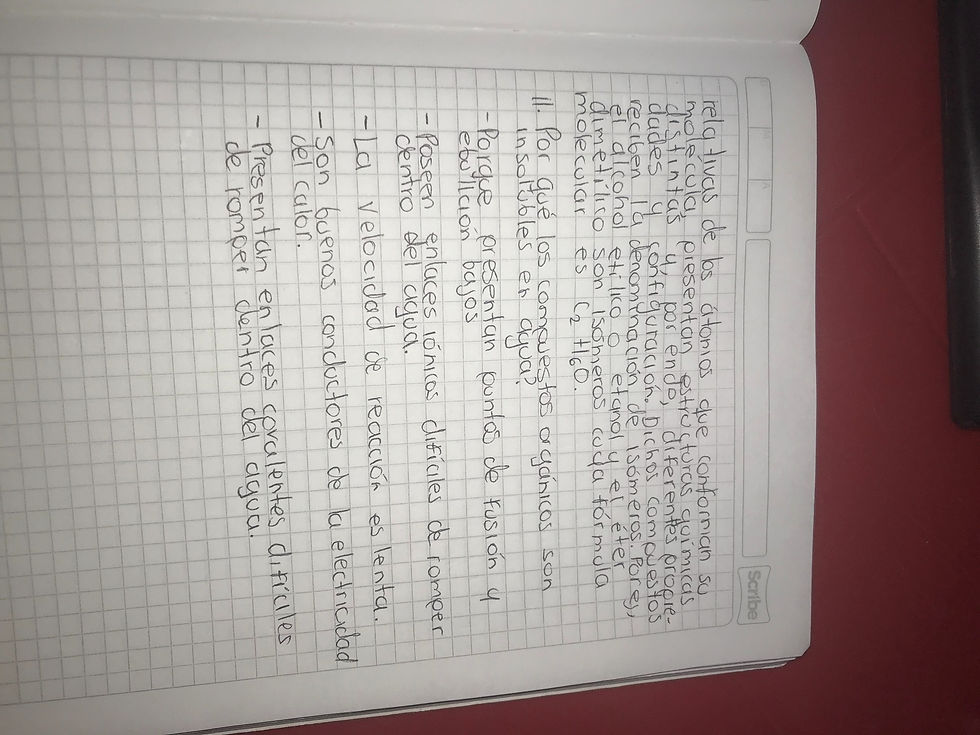 Scribe
relativas de los átomos que conforman su
moléculas presentan estructuras químicas
distintas y por endo, diferentes propie-
dades y configuración. Dichos compuestos
reciben la denominación de isómeros. Por ej,
el alcohol etílico o etanol y el éter
dimetílico son isómeros cuya fórmula
molecular es C₂H₆O.
11. Por qué los compuestos orgánicos son
insolubles en agua?
- Porque presentan puntos de fusión y
ebullición bajos
- Poseen enlaces iónicos difíciles de romper
dentro del agua.
- La velocidad de reacción es lenta.
- Son buenos conductores de la electricidad
del calor.
- Presentan enlaces covalentes difíciles
de romper dentro del agua.